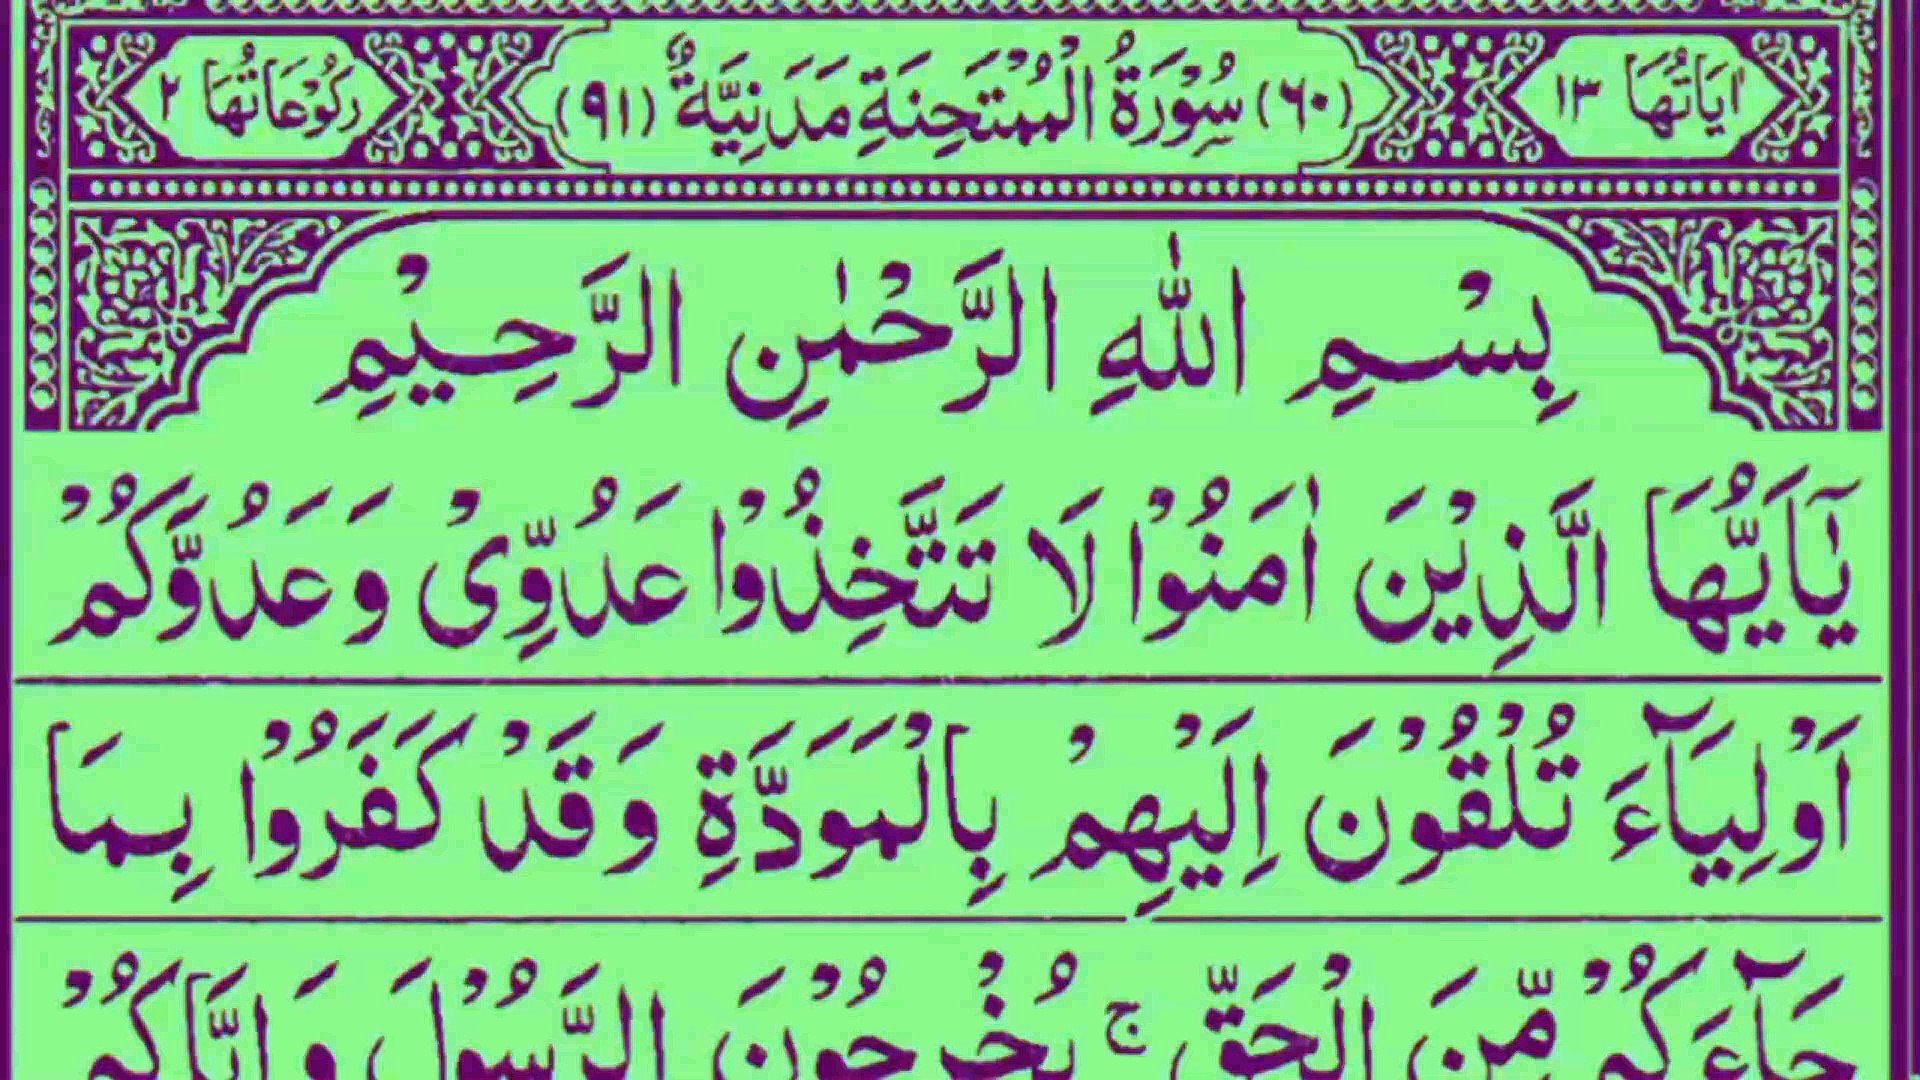 اٰیَاتُهَا ١٣ (٦٠) سُوْرَةُ الْمُمْتَحِنَةِ مَدَنِیَّةٌ (٩١) رُكُوْعَاتُهَا ٢
بِسْمِ اللّٰهِ الرَّحْمٰنِ الرَّحِیْمِ
یٰۤاَیُّهَا الَّذِیْنَ اٰمَنُوْا لَا تَتَّخِذُوْا عَدُوِّیْ وَ عَدُوَّكُمْ
اَوْلِیَآءَ تُلْقُوْنَ اِلَیْهِمْ بِالْمَوَدَّةِ وَ قَدْ كَفَرُوْا بِمَا
جَآءَكُمْ مِّنَ الْحَقِّ ۚ یُخْرِجُوْنَ الرَّسُوْلَ وَ اِیَّاكُمْ